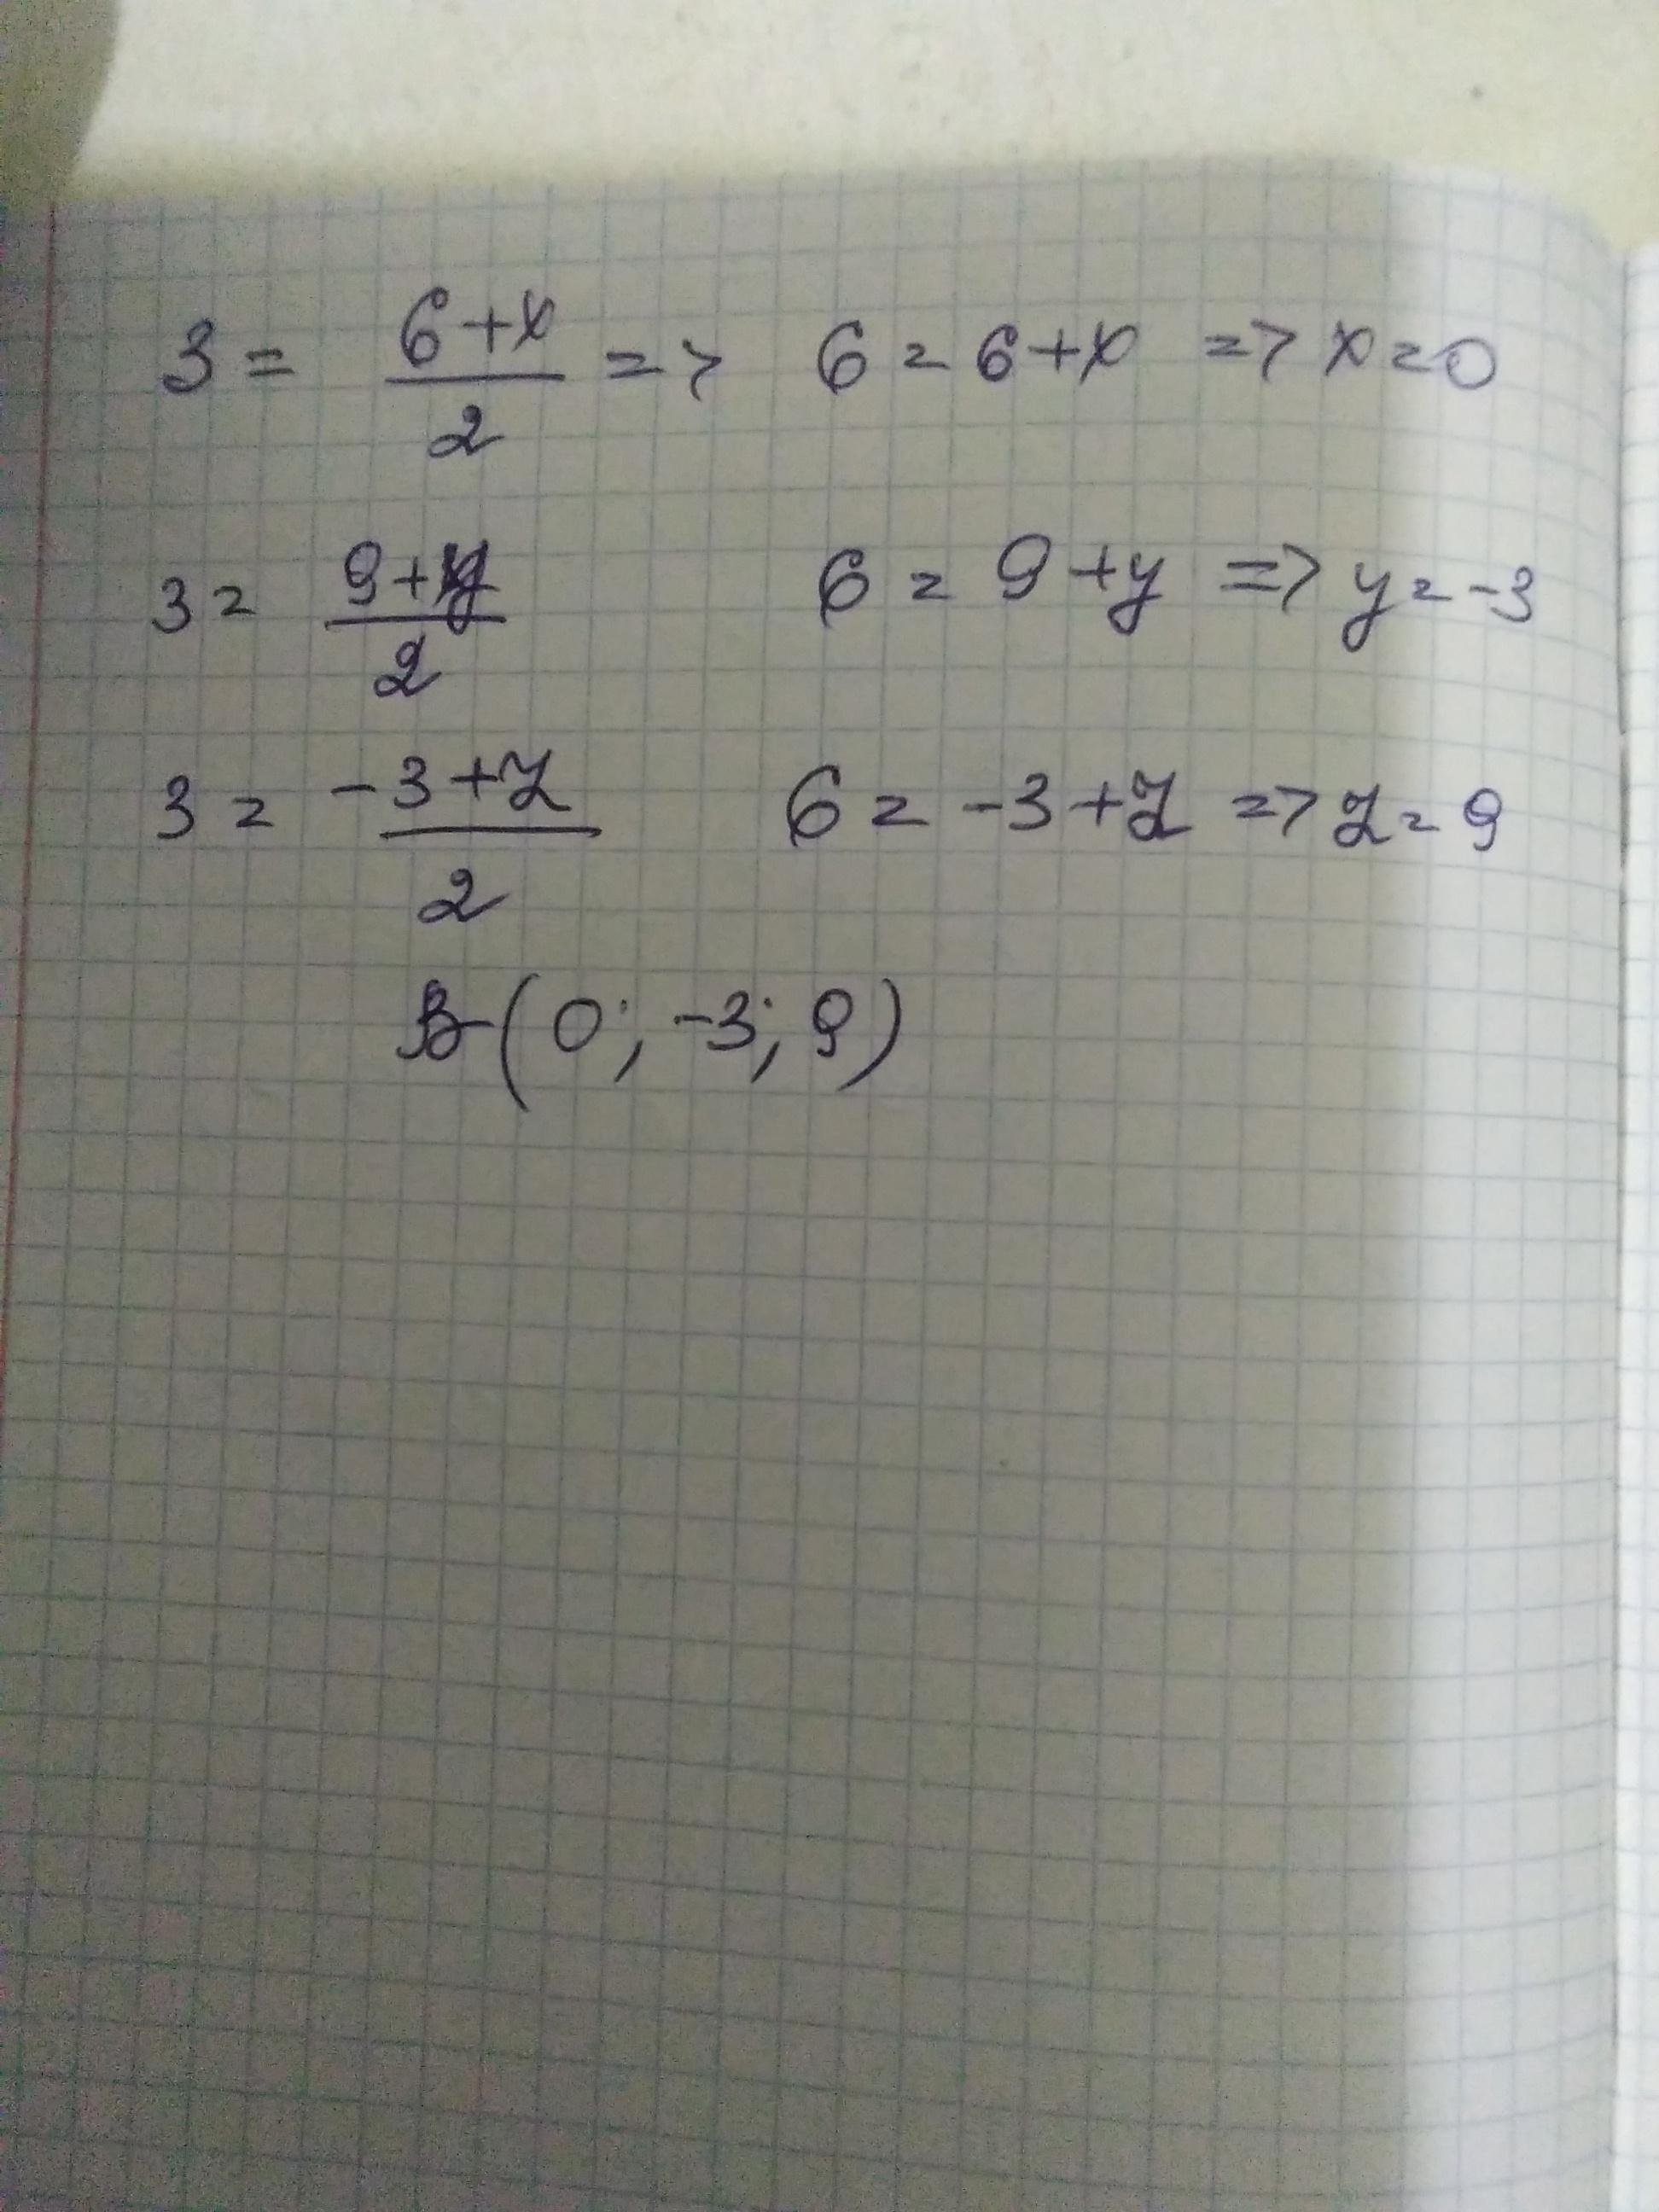 3 = (6+x)/2 => 6 = 6+x => x = 0
3 = (9+y)/2 6 = 9+y => y = -3
3 = (-3+z)/2 6 = -3+z => z = 9
B(0; -3; 9)